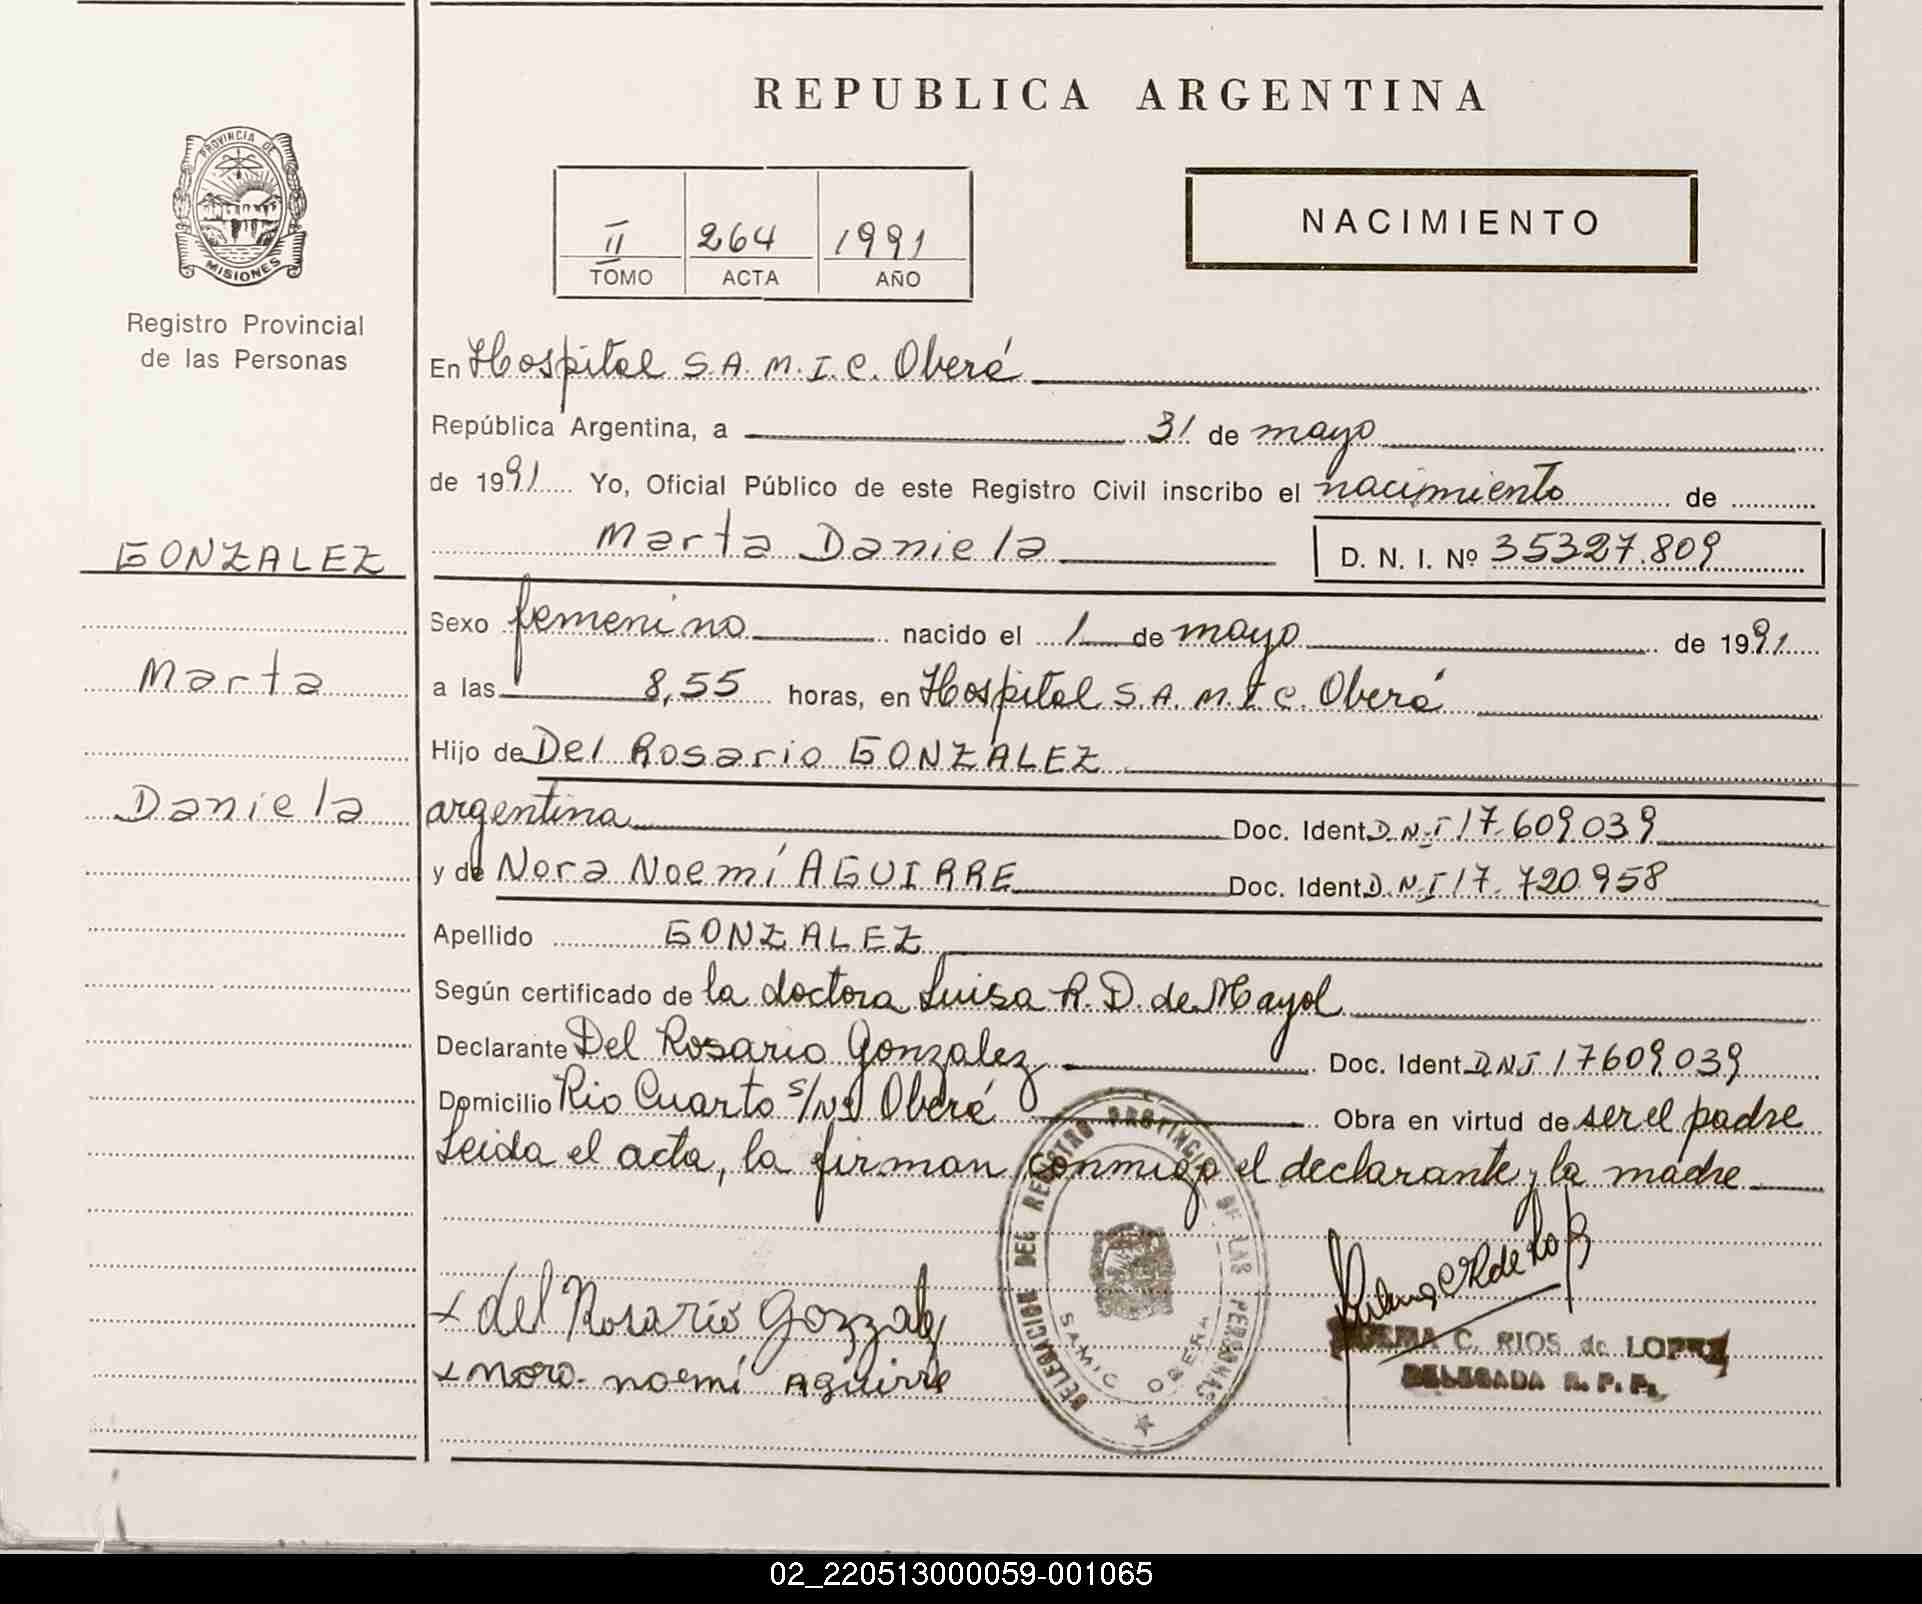 REPUBLICA ARGENTINA
PROVINCIA DE
MISIONES
Registro Provincial
de las Personas
II 264 1991
TOMO ACTA AÑO
NACIMIENTO
En Hospital S.A.M.I.C. Oberá
República Argentina, a 31 de mayo
de 1991 Yo, Oficial Público de este Registro Civil inscribo el nacimiento de
Marta Daniela D. N. I. Nº 35327.809
GONZALEZ
Marta
Daniela
Sexo femenino nacido el 1 de mayo de 1991
a las 8,55 horas, en Hospital S.A.M.I.C. Oberá
Hijo de Del Rosario GONZALEZ
argentina Doc. Ident D.N.I 17.609.039
y de Nora Noemí AGUIRRE Doc. Ident D.N.I 17.720.958
Apellido GONZALEZ
Según certificado de la doctora Luisa R. D. de Mayol
Declarante Del Rosario Gonzalez Doc. Ident DNI 17609.039
Domicilio Rio Cuarto s/nº Oberá Obra en virtud de ser el padre
Leida el acta, la firman conmigo el declarante y la madre
x del Rosario Gozzalz
x Nora noemí Aguirre
DELEGACION DEL REGISTRO PROVINCIAL DE LAS PERSONAS
SAMIC OBERA
C. RIOS de LOPEZ
DELEGADA R. P. P.
02_220513000059-001065